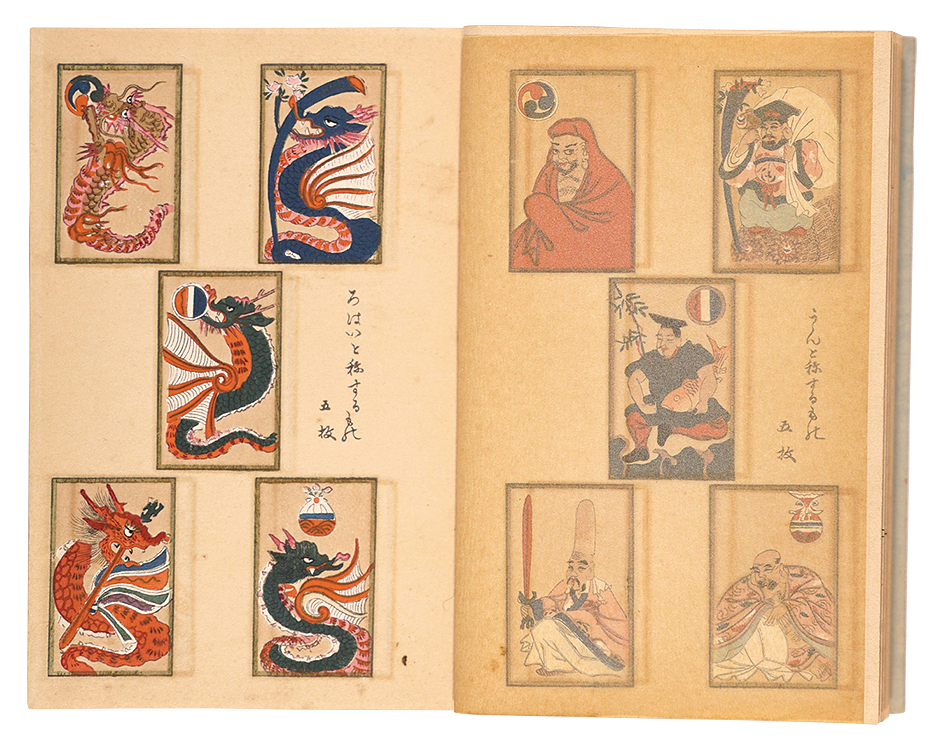 うんと称するもの
五枚
ろはいと称するもの
五枚